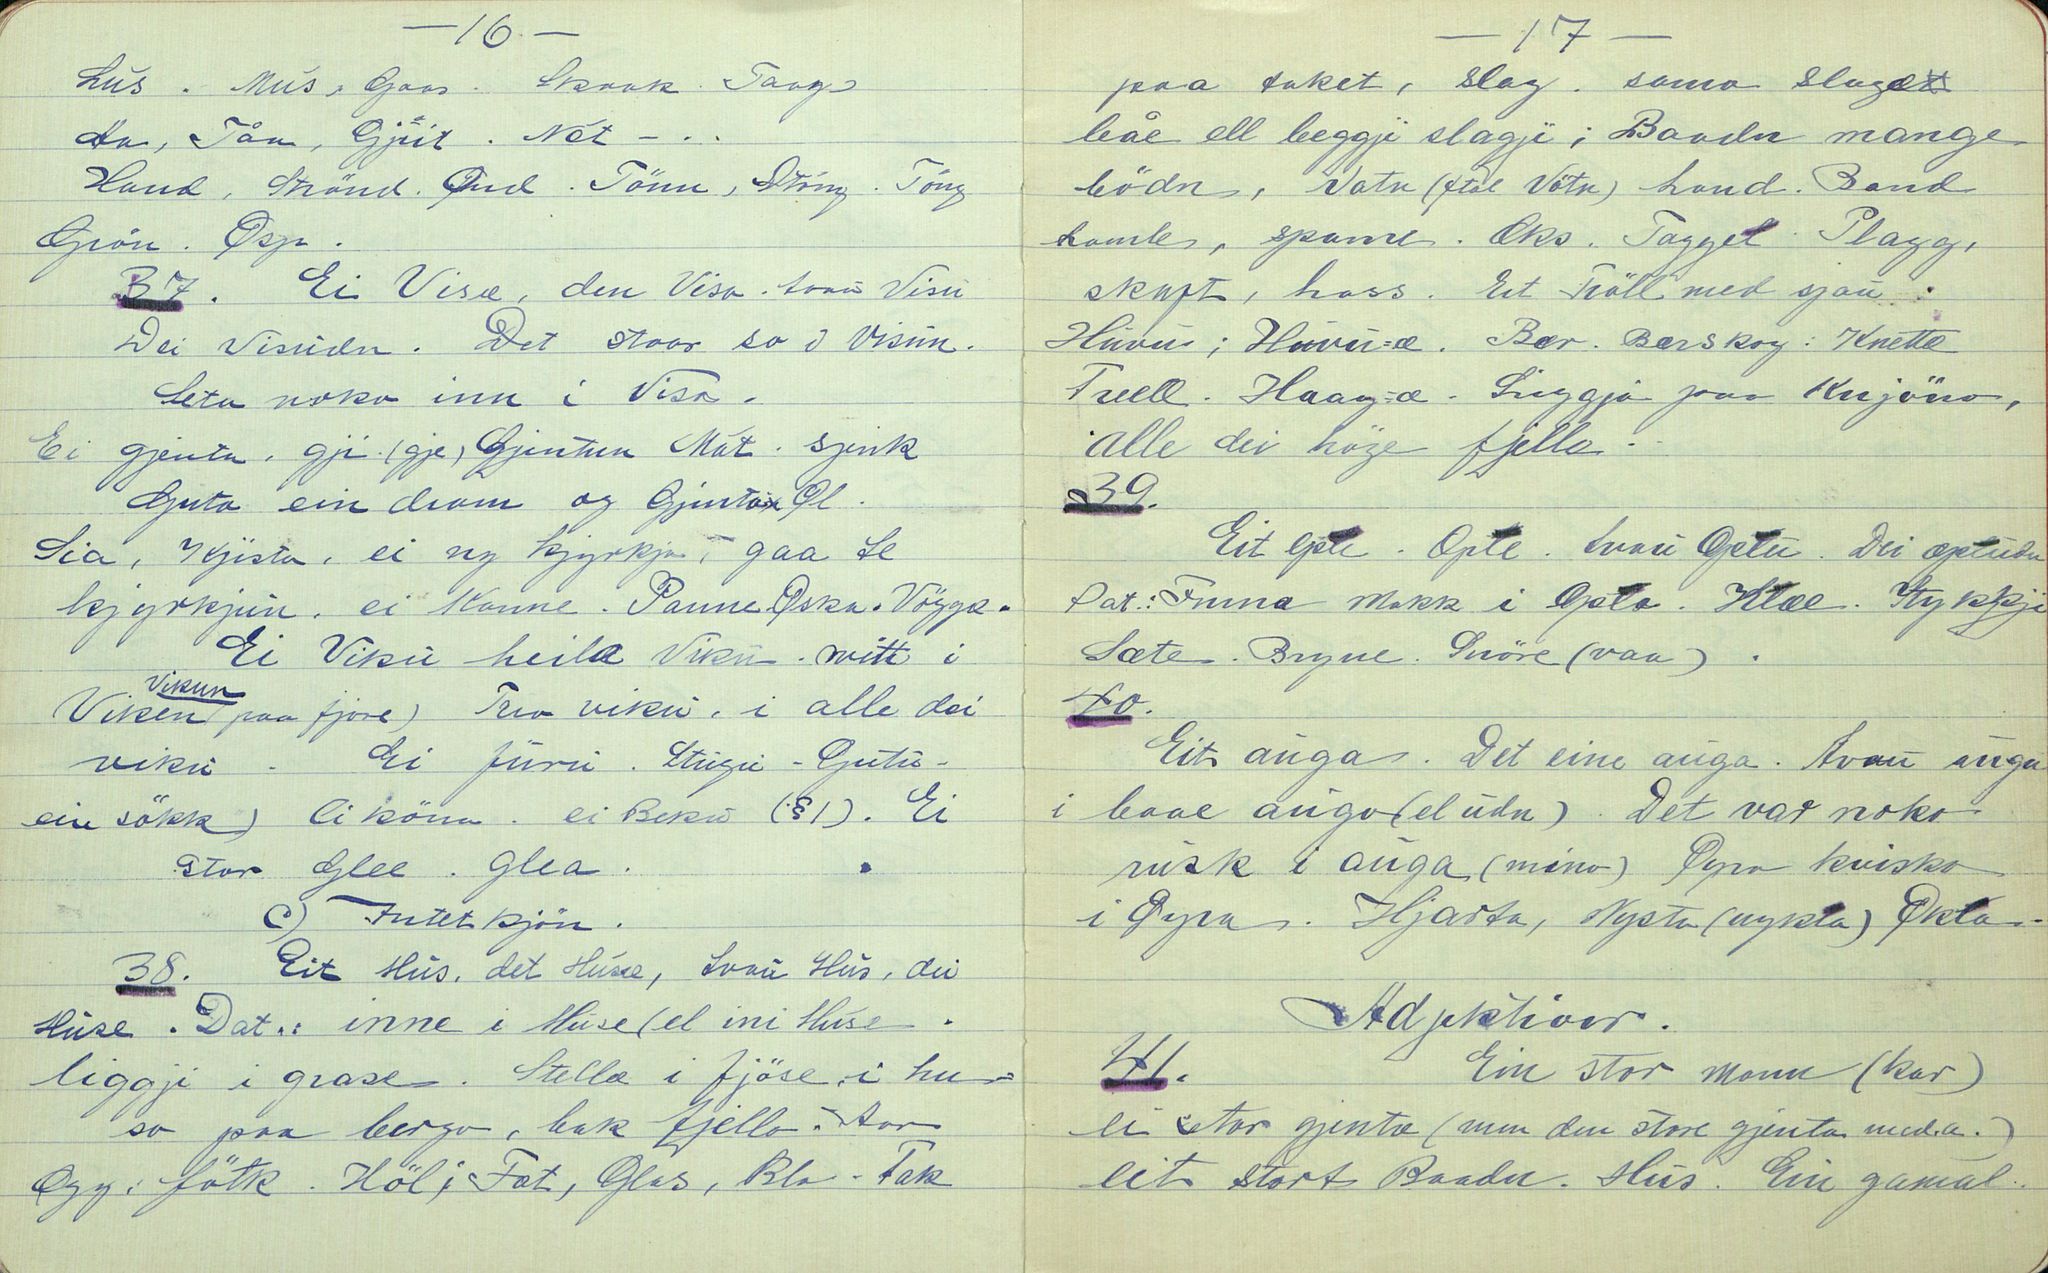 — 16 —
Lús . Mús, Gaas . Skaak . Taag
Aa, Tåa, Gjeit . Nót – . .
Hand, Strönd . Ønd . Tönn, Stöng . Töng
Grön . Øsp .
37. Ei Visæ, den Visa . tvau Visú
Dei Visúdn . Det staar so i Visún .
Seta noko inn i Visa .
Ei gjenta, gji (gje) Gjentun Mat . sjenk
Guta ein dram og Gjento Øl .
Sia, Kjista, ei ny kjyrkja, gaa te
kjyrkjún . ei Kanne . Panne Øska . Vögge .
Ei Vikú heila Vikú . mitt i
Vikun
Viken (paa fjore) Trio vikú, i alle dei
vikú . Ei fúrú . Stúgú – Gútú –
ein sökk) Ei köna . ei Bekú (§1). Ei
stor Glee . Glea .
c) Intetkjön .
38. Eit Hús, det Húse, tvau Hús, dei
Húse . Dat.: inne i Húse (el ini Húse .
liggji i grase . Stella i fjöse, i hu=
so paa bergo, bak fjello . Aar
Ogg: fötk . Höl; Fat, Glas, Bla . Tak
— 17 —
paa taket, slag . sama slaget
båe ell beggji slagji; Baadn mange
bödn, Vatn (ftal Vötn) hand . Band
lamb, spann . Oks . Tagget . Plagg,
skaft, hass . Eit Tröll med sjau
Húvú; Húvú=æ . Bær . Bærskog : Knette
Trell . Haag=æ . Liggja paa Knjöno,
alle dei höge fjello .
39.
Eit Eple . Eple . tvau Eplú . Dei eplúdn
Dat.: Finna Makk i Epla . Klæe . Stykkji
Sæte . Bryne . Snöre (vaa) .
40.
Eit auga . Det eine auga . tvau augú
i baae augo (el údn) . Det var noko
rúsk i auga (mino) Øyra kviska
i Øyra . Hjarta, Nysta (nykta) Økta –
Adjektiver .
41. Ein stor mann (kar)
ei stor gjenta (men den store gjenta med a.)
eit stort Baadn . Hús . Ein gamal .